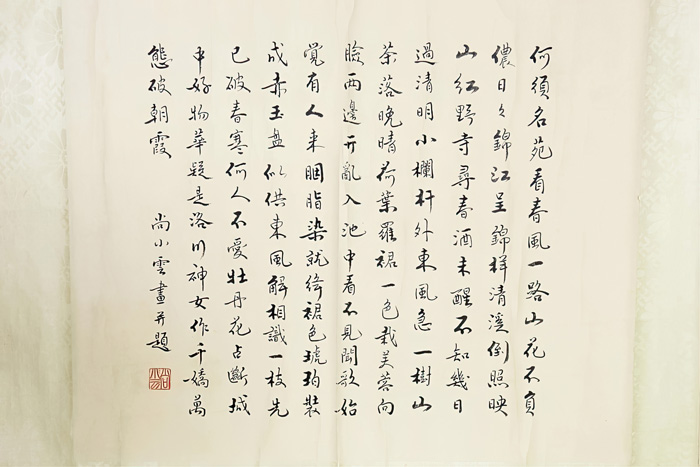 何須名苑看春風一路山花不負
儂日々錦江呈錦样清溪倒照映
山红野寺尋春酒未醒不知幾日
過清明小欄杆外東風急一樹山
茶落晚晴荷葉羅裙一色裁芙蓉向
臉两邊开亂入池中看不見聞歌始
覚有人来胭脂染就绛裙色琥珀裝
成赤玉盘似供東風解相識一枝先
已破春寒何人不愛牡丹花占斷城
中好物華疑是洛川神女作千嬌萬
態破朝霞
尚小雲畫并題